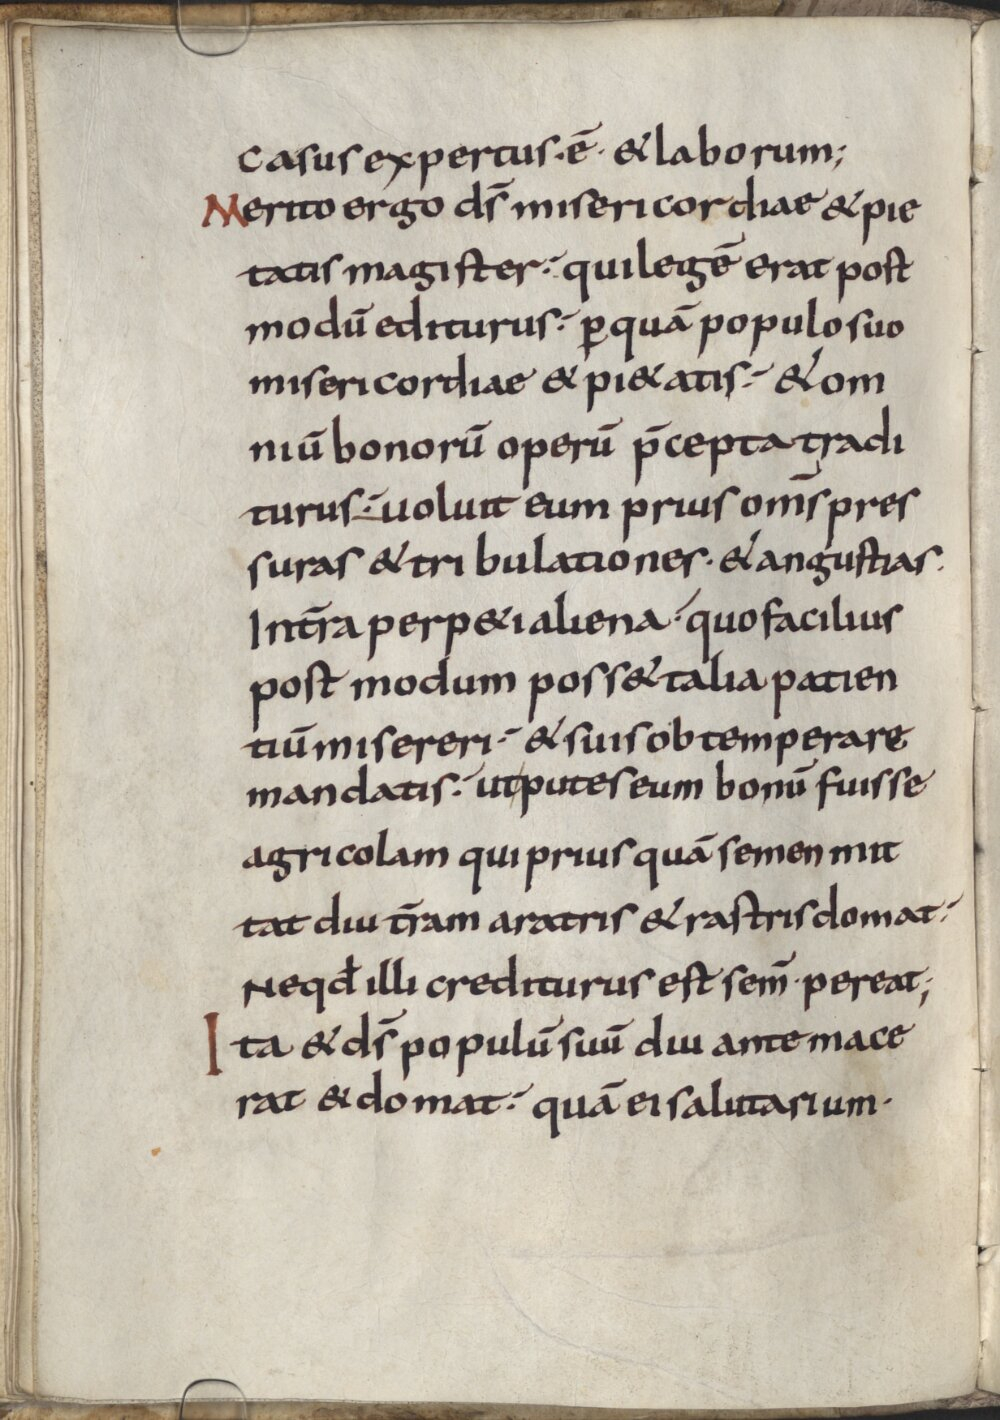 casus expertus·ē· & laborum;
Merito ergo ds̄ misericordiae & pie
tatis magister·́ qui legē erat post
modū editurus·́ p̱ quā populo suo
misericordiae & pi&atis·́ & om
niū bonorū operū p̄cepta tradi
turus·́ uoluit eum prius om̄s pres
suras & tribulationes· & angustias·
In t̄ra perp&i aliena·́ quo facilius
post modum poss& talia patien
tiū misereri·́ & suis obtemperare
mandatis·́ ut putes eum bonū fuisse
agricolam qui prius quā semen mit
tat diu t̄ram aratris & rastris domat·́
Neqd̄ illi crediturus est sem̄· pereat;
Ita & ds̄ populū suū diu ante mace
rat & domat·́ quā ei salutarium·